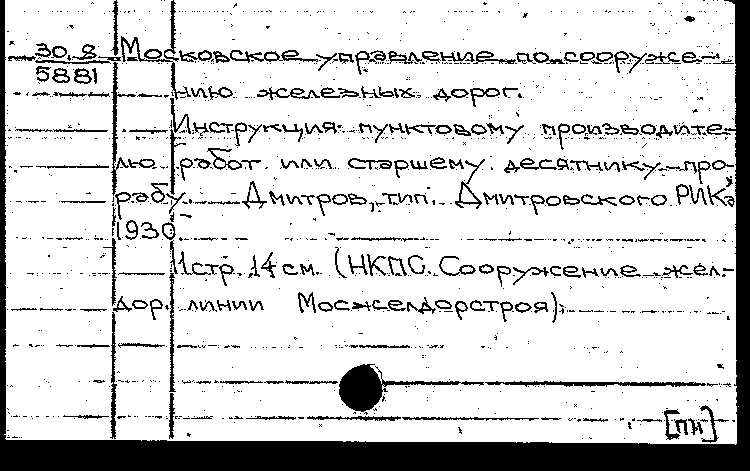 30.8 Московское управление по сооруже-
5881
нию железных дорог.
Инструкция пунктовому производите-
лю работ или старшему десятнику про-
рабу. Дмитров, тип. Дмитровского РИК'а
1930
11стр. 14 см. (НКПС. Сооружение жел.-
дор. линии Мосжелдорстроя).
[пн]